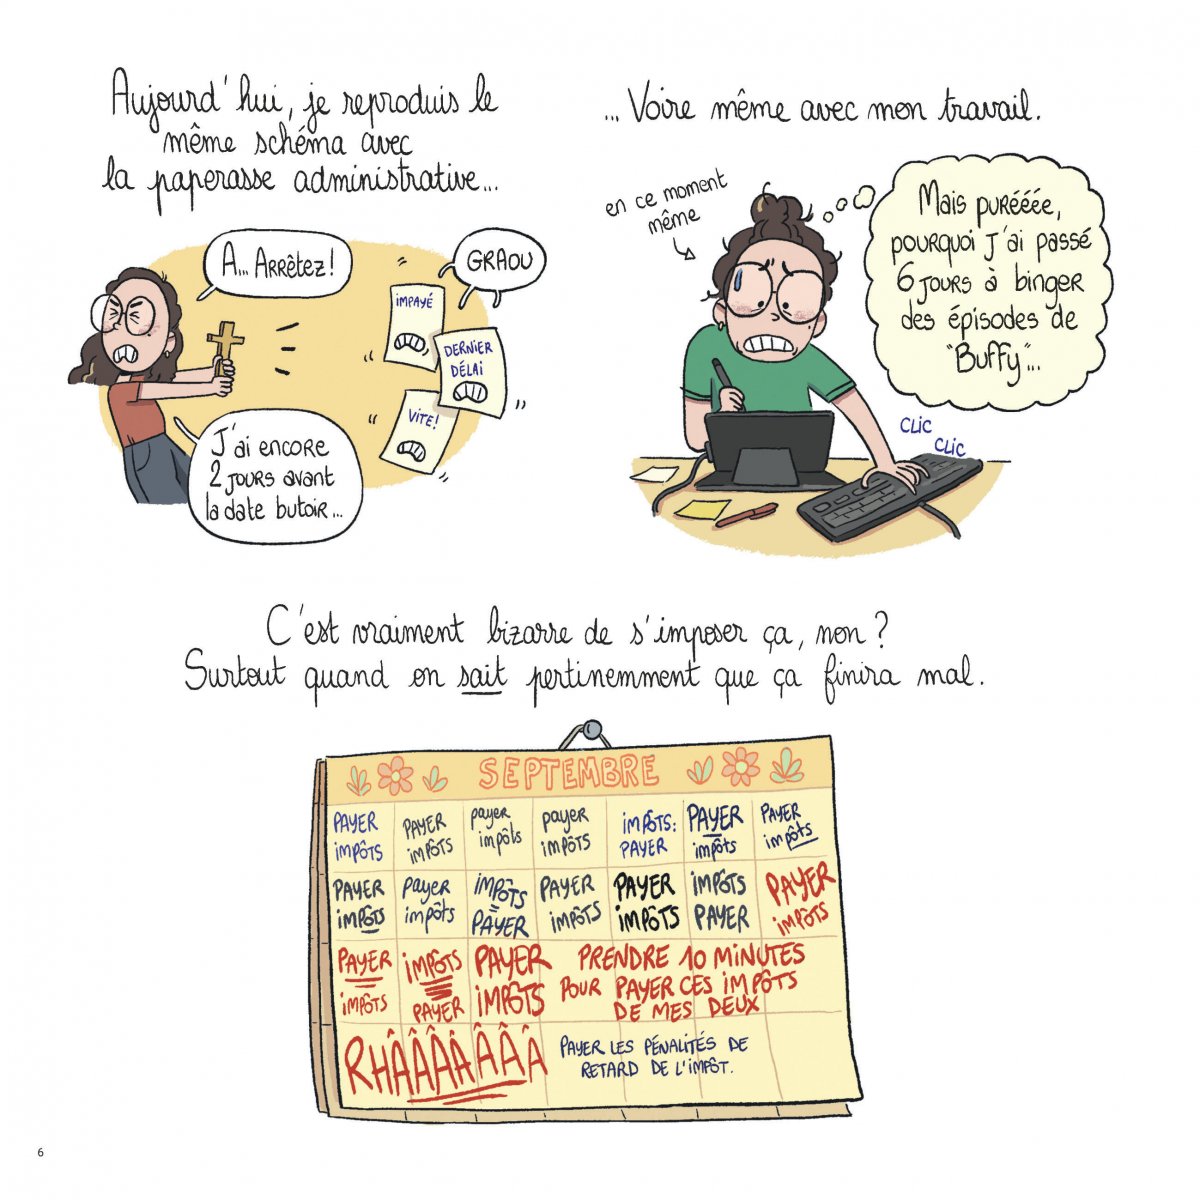 Aujourd'hui, je reproduis le
même schéma avec
la paperasse administrative...
A... Arrêtez !
GRAOU
impayé
Dernier
délai
Vite !
J'ai encore
2 jours avant
la date butoir...
... Voire même avec mon travail.
en ce moment
même
Mais purééée,
pourquoi j'ai passé
6 jours à binger
des épisodes de
"Buffy"...
CLIC
CLIC
C'est vraiment bizarre de s'imposer ça, non ?
Surtout quand on sait pertinemment que ça finira mal.
SEPTEMBRE
PAYER
impôts
PAYER
impôts
payer
impôts
payer
impôts
impôts :
PAYER
PAYER
impôts
PAYER
impôts
PAYER
impôts
payer
impôts
impôts
PAYER
PAYER
impôts
PAYER
impôts
impôts
PAYER
PAYER
impôts
PAYER
impôts
impôts
PAYER
PAYER
impôts
PRENDRE 10 MINUTES
POUR PAYER CES IMPÔTS
DE MES DEUX
RHÂÂÂÂÂÂÂ
PAYER LES PÉNALITÉS DE
RETARD DE L'IMPÔT.
6